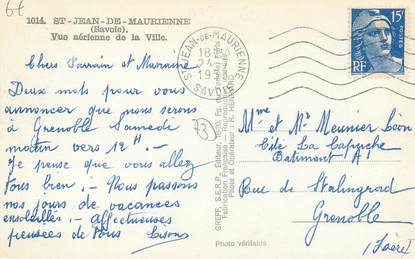 6E
1014. ST-JEAN-DE-MAURIENNE
(Savoie).
Vue aérienne de la Ville.
ST-JEAN-DE-MAURIENNE
18H
24
SAVOIE
15F
POSTES
RF
Chers Parrain et Marraine
Deux mots pour vous
annoncer que nous serons
à Grenoble Samedi
matin vers 12H -
Je pense que vous allez
tous bien :- Nous passons
nos jours de vacances
ensoleillés :- Affectueuses
pensées de tous
73
GREFF, S.E.R.P., Editeur,
Fabrication Française - Reproduction
Photo et Opérateur : R. HENRARD
Photo véritable
Mme et Mr Meunier Léon
Cité La Capuche
Batiment A1
Rue de Stalingrad
Grenoble
(Isère)